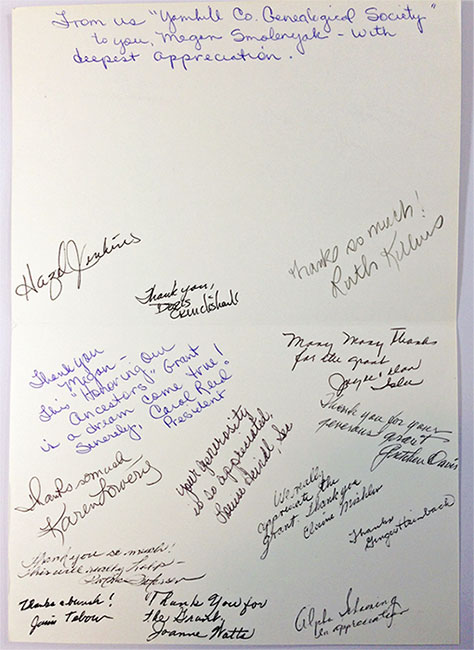 From us "Yamhill Co. Genealogical Society"
to you, Megan Smolenyak - with
deepest appreciation.
Hazel Jenkins
Thanks so much!
Ruth Killins
Thank you,
Doris
Cruickshank
Many Many Thanks
for the grant
Joyce & Dean
Thank you
Megan -
This "Honoring Our
Ancestors!" Grant
is a dream come true!
Sincerely, Carol Reid
President
Thank you for your
generous grant
Gretchen Davis
your generosity
is so appreciated,
Louise Sec
Thanks so much
Karen
We really
appreciate the
grant thank you
Elaine
Thanks
Ginger
Thank you so much!
This will really help -
Thanks a bunch!
Tabow
"Thank You for
the Grant,
Joanne Watts
Alpha
In appreciation